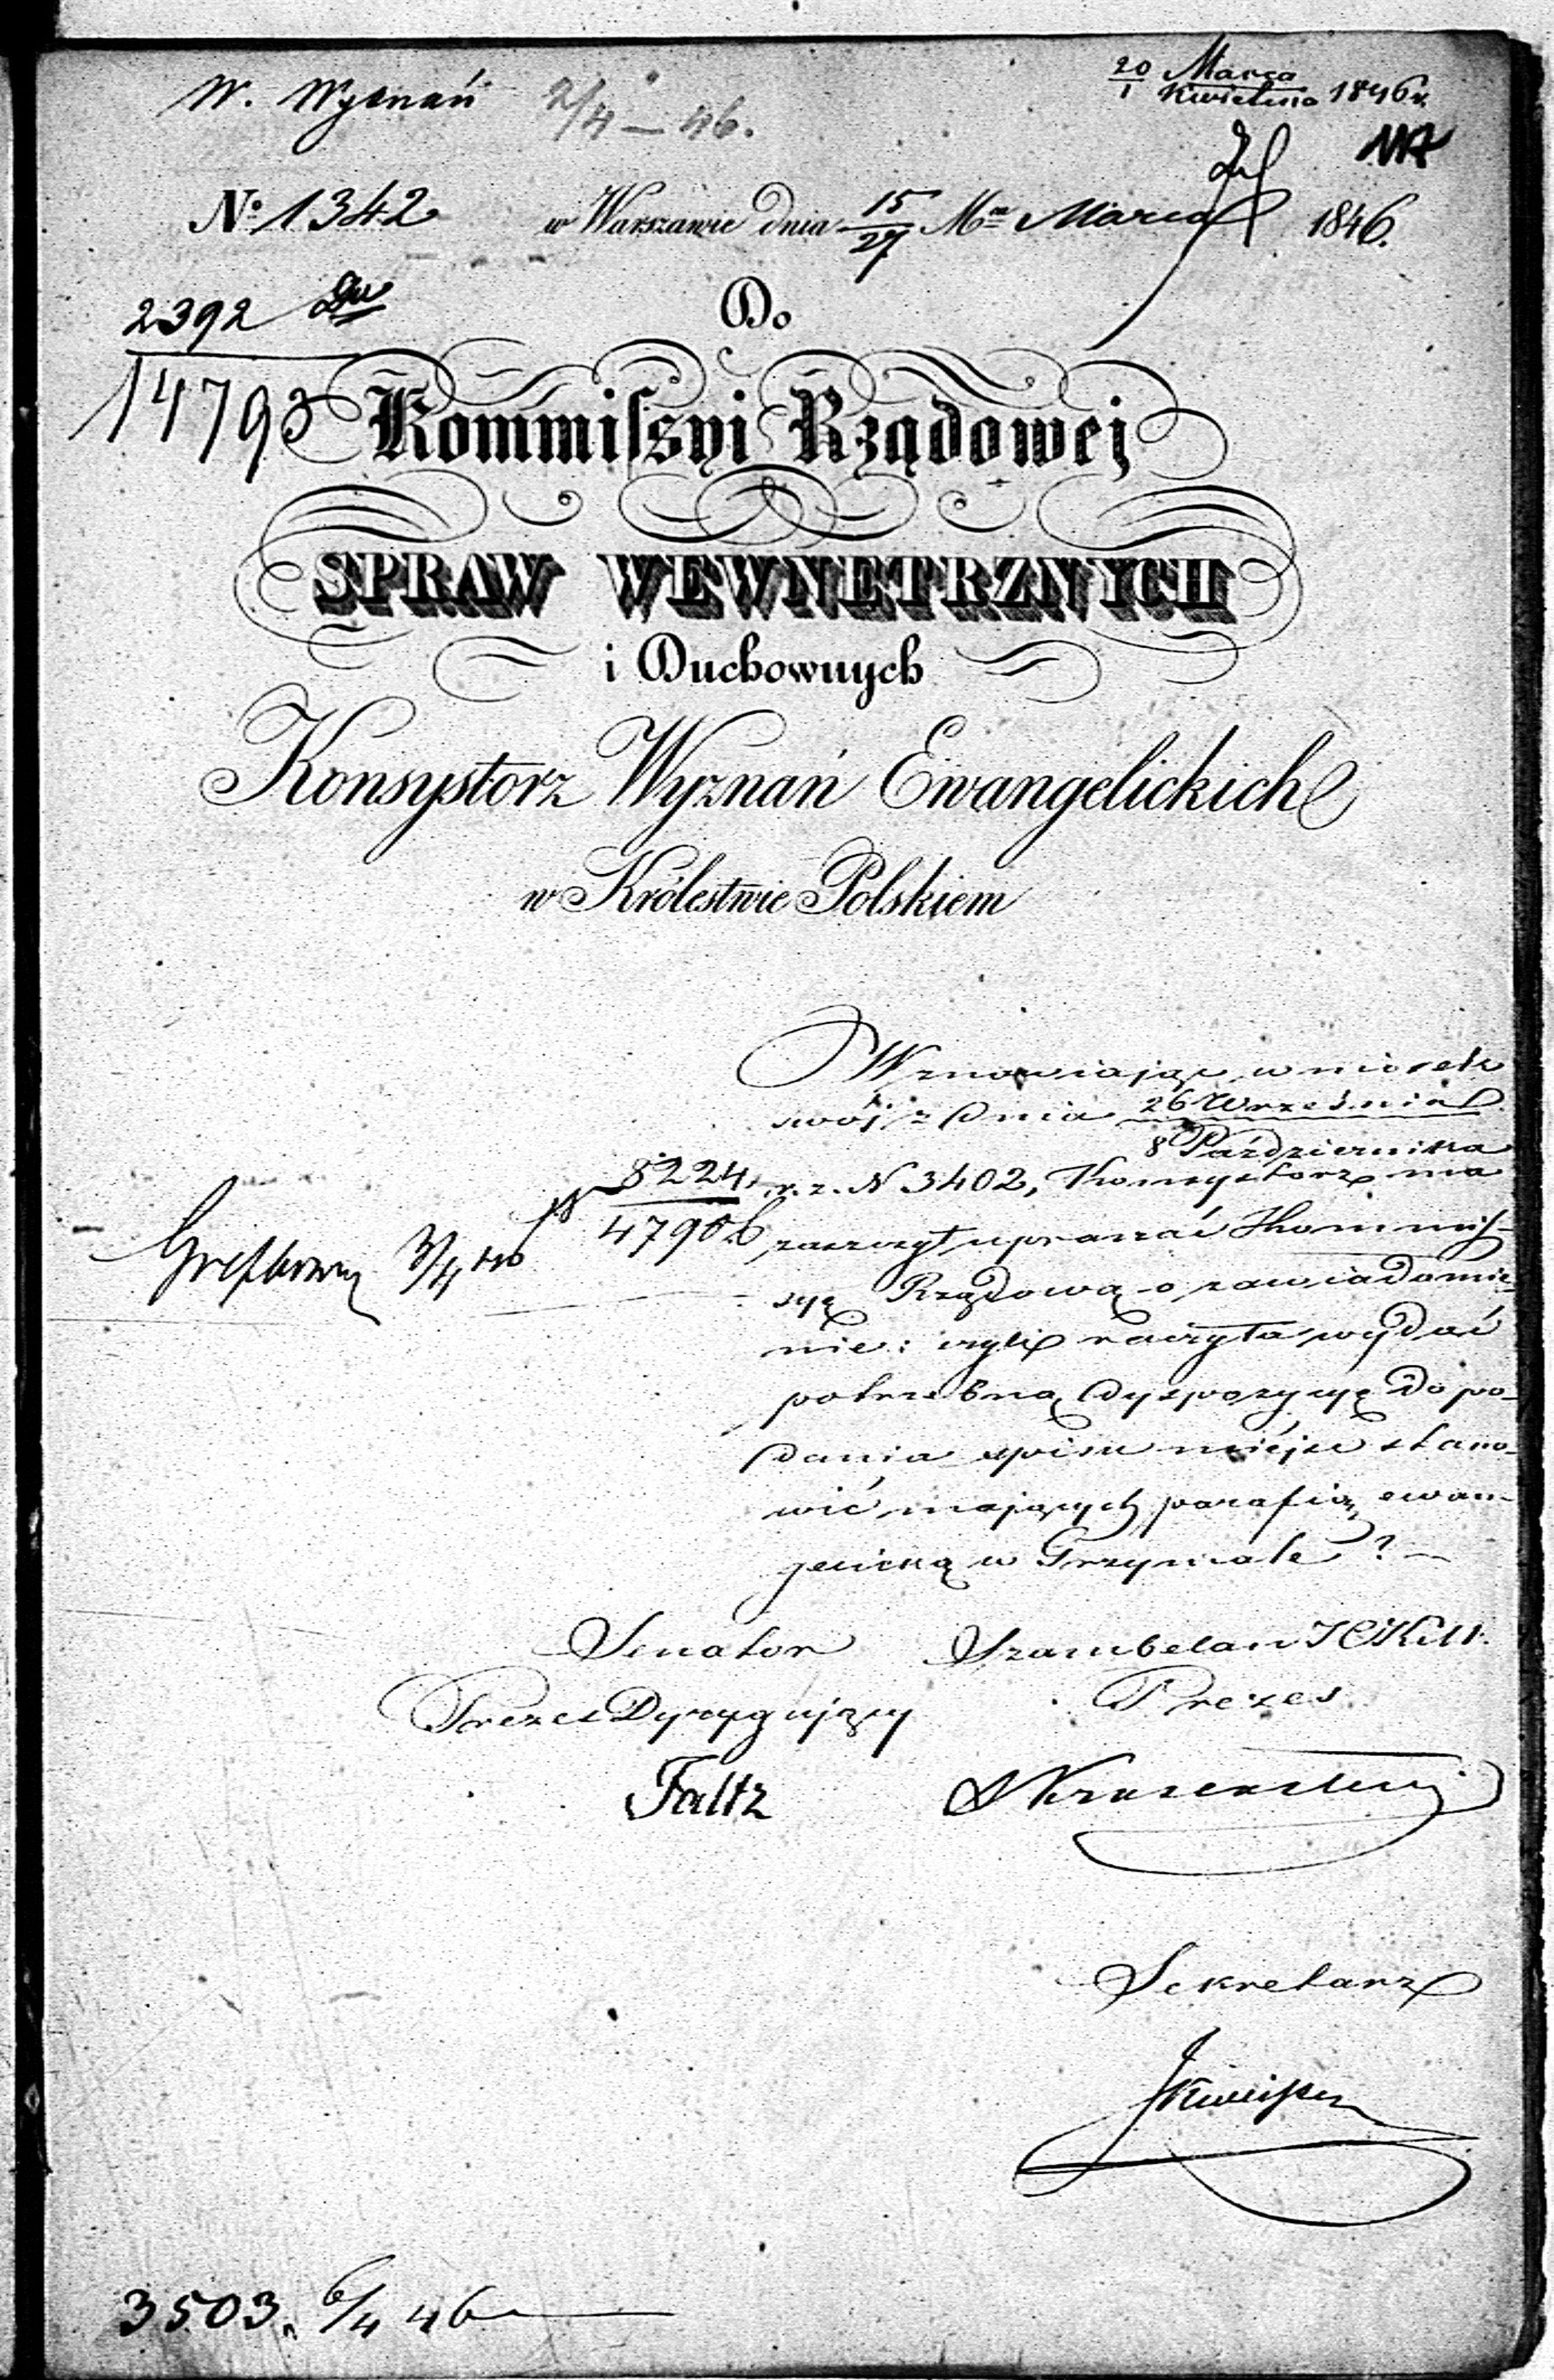 W. Wyznań 2/4 – 46.
20 Marca
1 Kwietnia 1846 r.
117
№ 1342 w Warszawie dnia 15/27 Mca Marca 1846.
2392
14793
Do
Kommiſsyi Rządowej
SPRAW WEWNĘTRZNYCH
i Duchownych
Konsystorz Wyznań Ewangelickich
w Królestwie Polskiem
Wznawiając wniosek
swój z dnia 26 Września
8 Października
8224
47906
r. z. N 3402, Konsystorz ma
zaszczyt upraszać Kommiſ-
syę Rządową o zawiadomie-
nie: czyli raczyła wydać
potrzebną dyspozycyę do po-
dania spisu miéjsc stano-
wić mających parafią ewan-
jelicką w Grzymale? –
3/4
Senator Szambelan JCKM.
Prezes Dyrygujący Prezes
Faltz
Sekretarz
3503. 6/4 46